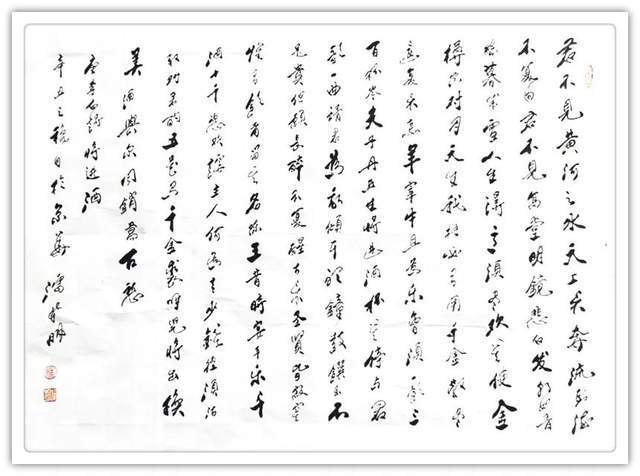 君不見黃河之水天上來奔流到海
不復回君不見高堂明鏡悲白发朝如青
絲暮成雪人生得意須盡欢莫使金
樽空對月天生我材必有用千金散盡
還復來烹羊宰牛且為樂會須一飲三
百杯岑夫子丹丘生將進酒杯莫停与君
歌一曲請君為我傾耳聽鐘鼓饌玉不
足貴但願長醉不復醒古來圣賢皆寂寞
惟有飲者留其名陳王昔時宴平樂斗
酒十千恣歡謔主人何為言少錢徑須沽
取對君酌五花馬千金裘呼兒將出換
美酒與尔同銷萬古愁
唐李白詩將進酒
辛丑之秋日於京華 潘 明